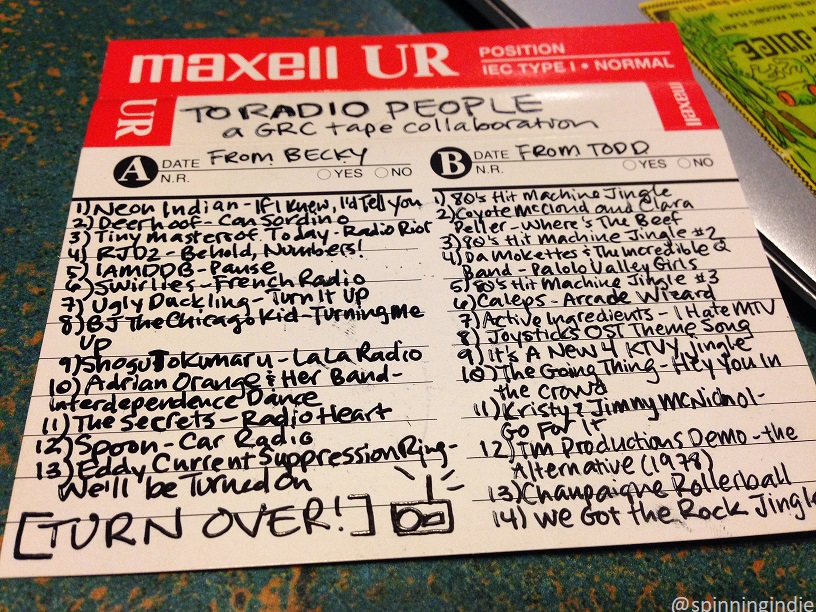 maxell UR
POSITION
IEC TYPE I • NORMAL
UR
maxell
TO RADIO PEOPLE
a GRC tape collaboration
A DATE FROM BECKY
N.R. YES NO
1) Neon Indian - If I Knew, I'd Tell You
2) Deerhoof - Can Sordino
3) Tiny Masters of Today - Radio Riot
4) RJD2 - Behold, Numbers!
5) IAMDDB - Pause
6) Swirlies - French Radio
7) Ugly Duckling - Turn It Up
8) BJ The Chicago Kid - Turning Me
up
9) Shogu Tokumaru - LaLa Radio
10) Adrian Orange & Her Band -
Interdependence Dance
11) The Secrets - Radio Heart
12) Spoon - Car Radio
13) Eddy Current Suppression Ring -
We'll be Turned On
[TURN OVER!]
B DATE FROM TODD
N.R. YES NO
1) 80's Hit Machine Jingle
2) Coyote McCloud and Clara
Peller - Where's The Beef
3) 80's Hit Machine Jingle #2
4) Da Mokettes & The Incredible Q
Band - Palolo Valley Girls
5) 80's Hit Machine Jingle #3
6) Caleps - Arcade Wizard
7) Active Ingredients - I Hate MTV
8) Joysticks OST Theme Song
9) It's A New 4 KTVY Jingle
10) The Going Thing - Hey You In
the Crowd
11) Kristy & Jimmy McNichol -
Go For It
12) TM Productions Demo - the
Alternative (1978)
13) Champaigne Rollerball
14) We Got the Rock Jingle
JUICE
@spinningindie